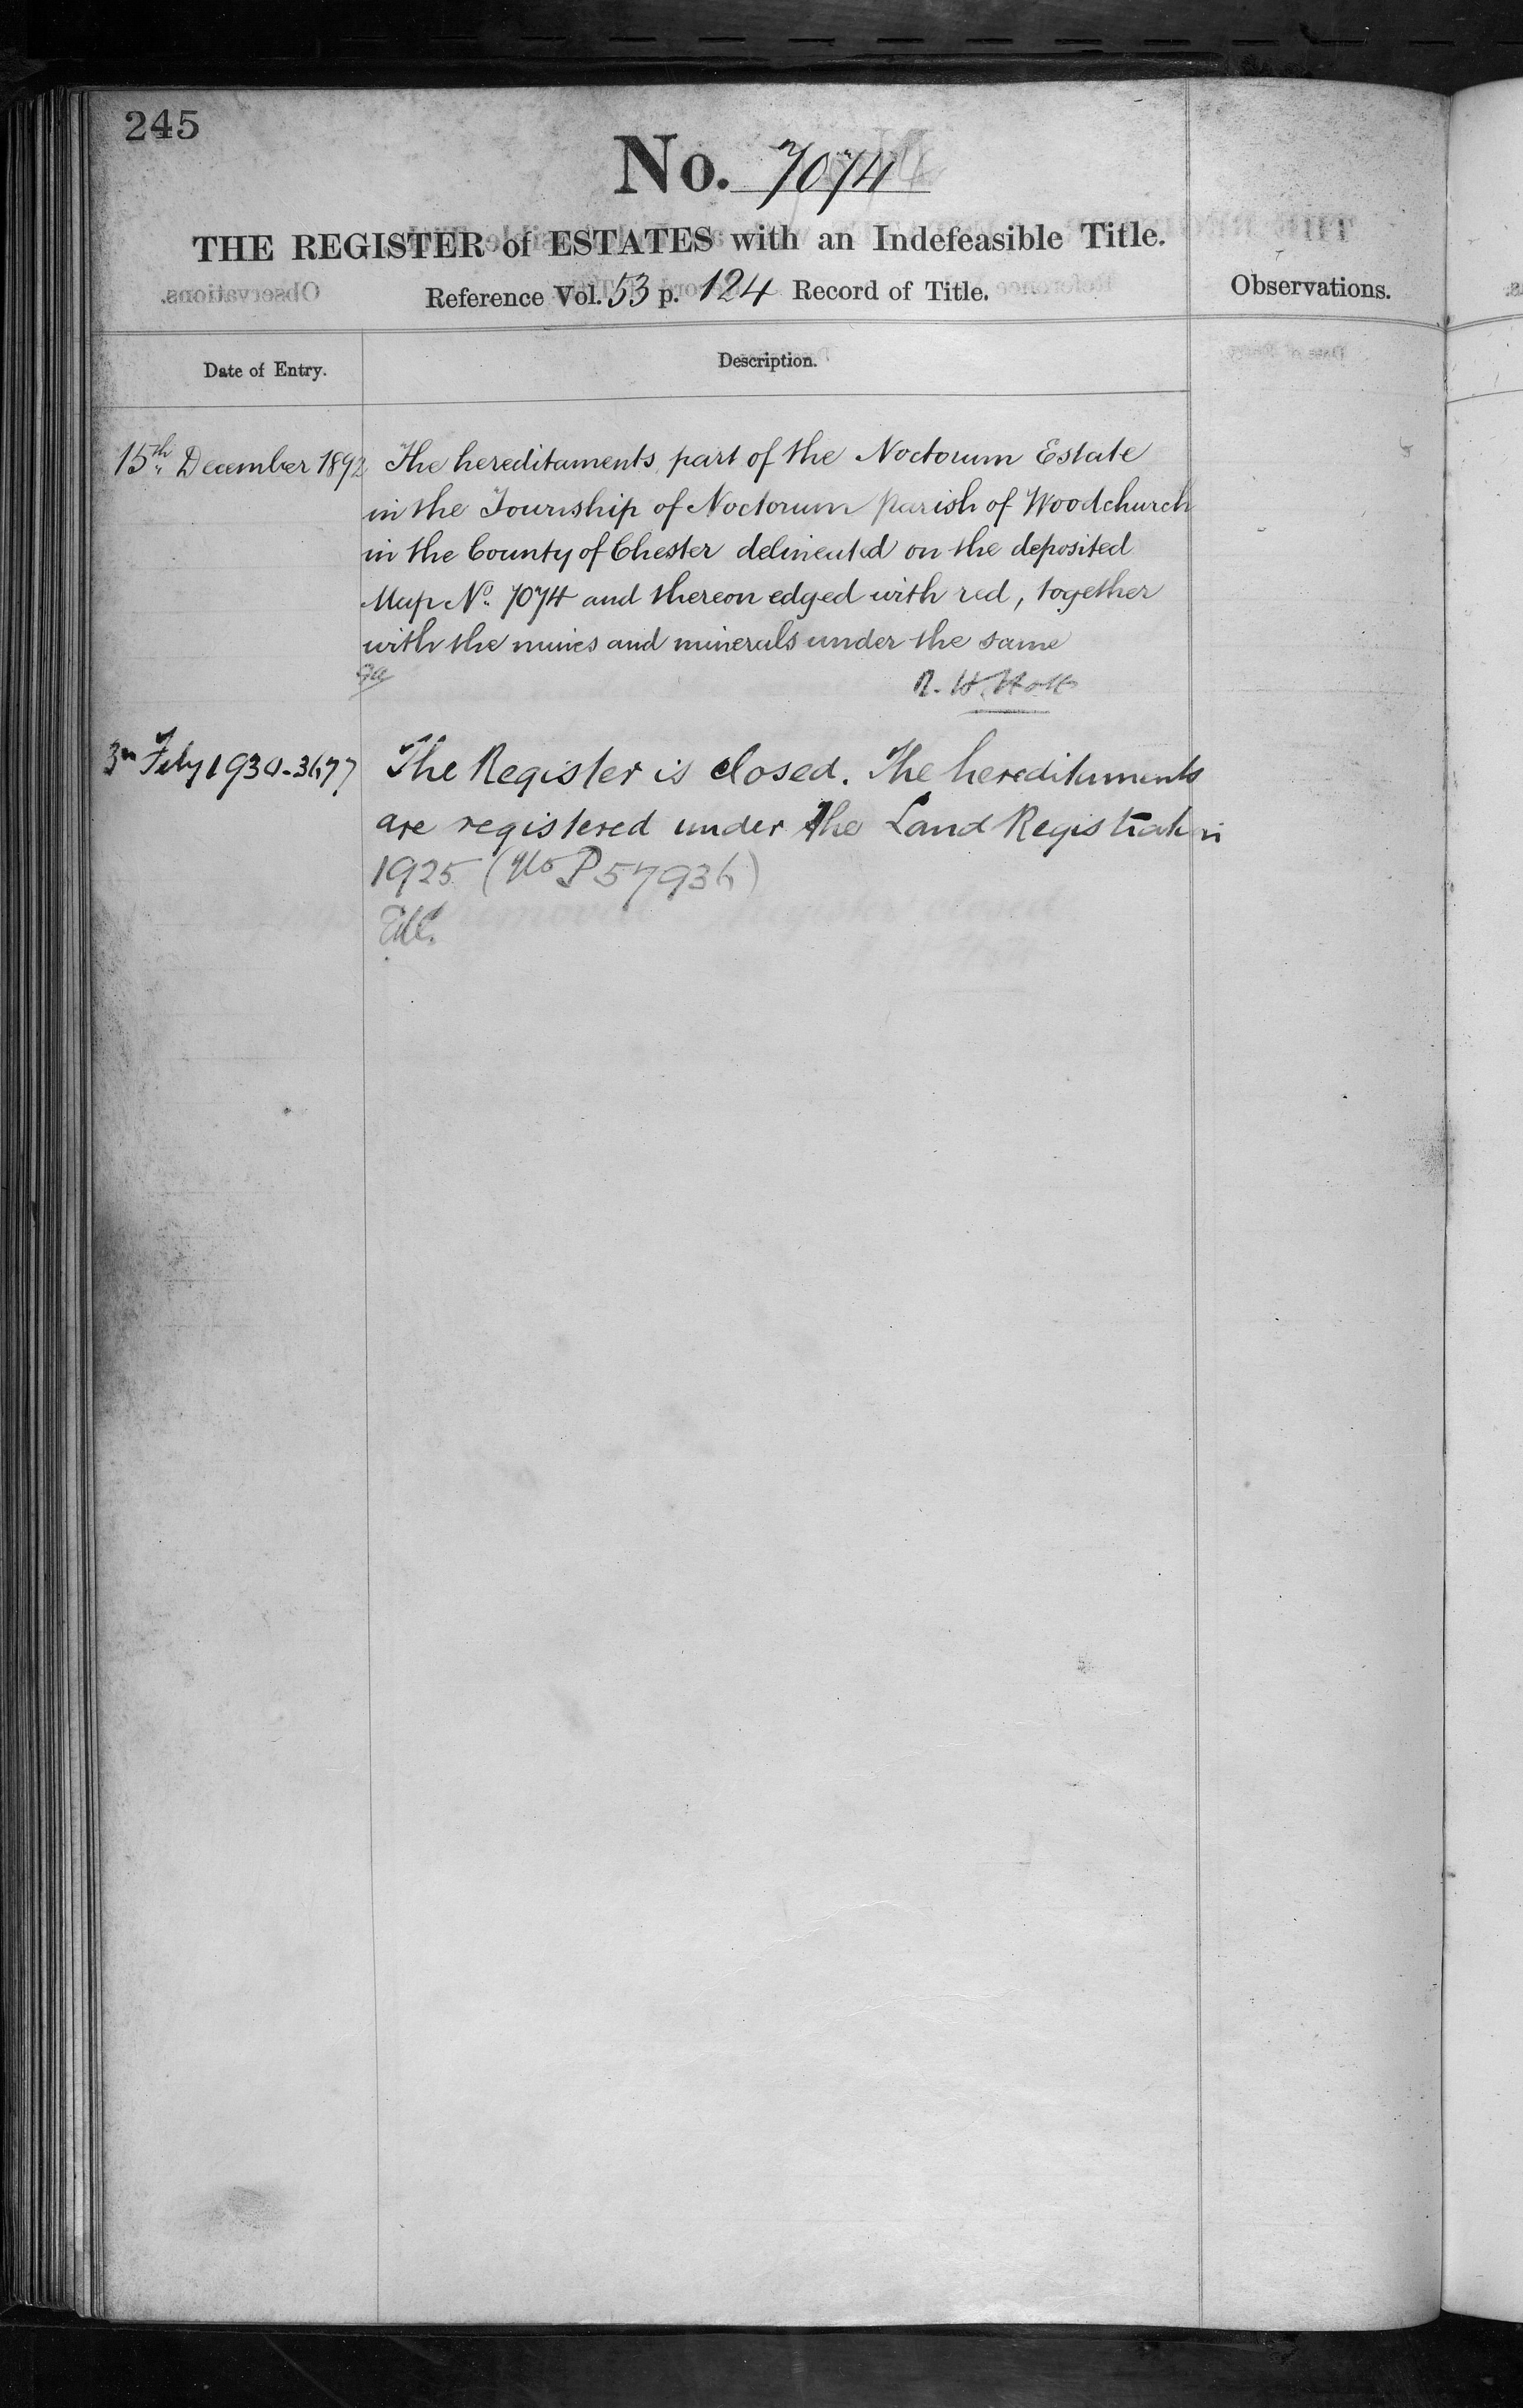 245
No. 7074
THE REGISTER of ESTATES with an Indefeasible Title.
Reference Vol. 53 p. 124 Record of Title.
Observations.
Date of Entry.
Description.
15th December 1892
The hereditaments part of the Noctorum Estate
in the Township of Noctorum parish of Woodchurch
in the County of Chester delineated on the deposited
Map No. 7074 and thereon edged with red, together
with the mines and minerals under the same
R. H. Holt
3rd Feby 1930
The Register is closed. The hereditaments
are registered under the Land Registration
1925 (No P57936)